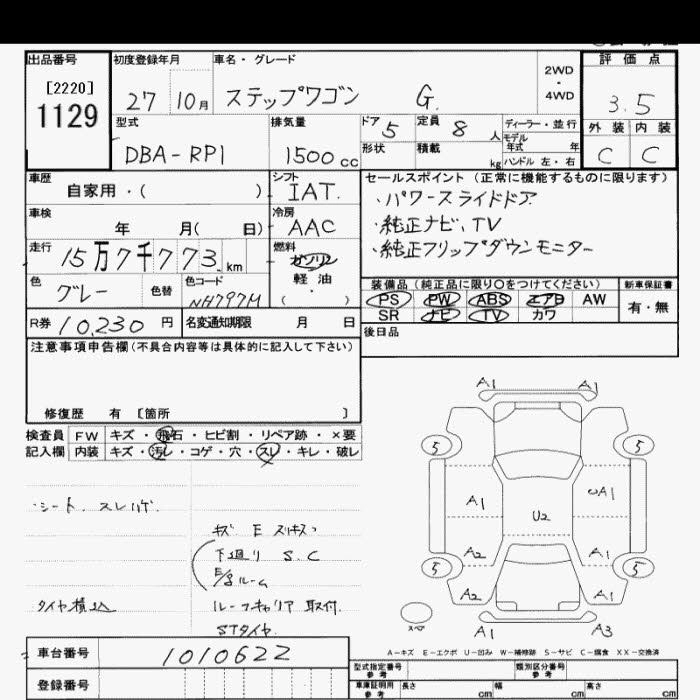 出品番号 初度登録年月 車名・グレード 2WD・4WD 評価点
[2220]
1129
27 10月 ステップワゴン G. 3.5
型式 排気量 ドア 5 定員 8 人 ディーラー・並行 外装 内装
モデル年式 年
DBA-RP1 1500cc 形状 積載 kg ハンドル 左・右 C C
車歴 シフト セールスポイント(正常に機能するものに限ります)
自家用・( ) IAT.
・パワースライドドア
車検 冷房
年 月( 日) AAC
・純正ナビ、TV
走行 燃料
15万7千773.km ガソリン
・純正フリップダウンモニター
色 色替 色コード 軽油
グレー NH797M ・( )
装備品(純正品に限り○をつけてください) 新車保証書
PS PW ABS エアB AW 有・無
SR ナビ TV カワ
R券 10,230 円 名変通知期限 月 日
後日品
注意事項申告欄(不具合内容等は具体的に記入して下さい)
修復歴 有 [箇所 ]
検査員 FW キズ・飛石・ヒビ割・リペア跡・×要
記入欄 内装 キズ・汚レ・コゲ・穴・スレ・キレ・破レ
A1 A1
5 5
A1 U2 A1
A2 A1
5 5
A2 A1
スペア
A1 A3
・シート、スレ
キズ E
下廻り S.C
E/gルーム
タイヤ積込
ルーフキャリア取付.
STタイヤ.
A-キズ E-エクボ U-凹み W-補修跡 S-サビ C-腐食 XX-交換済
車台番号 1010622
型式指定番号 参考 類別区分番号 参考
登録番号
車庫証明用 参考 長さ cm 幅 cm 高さ cm